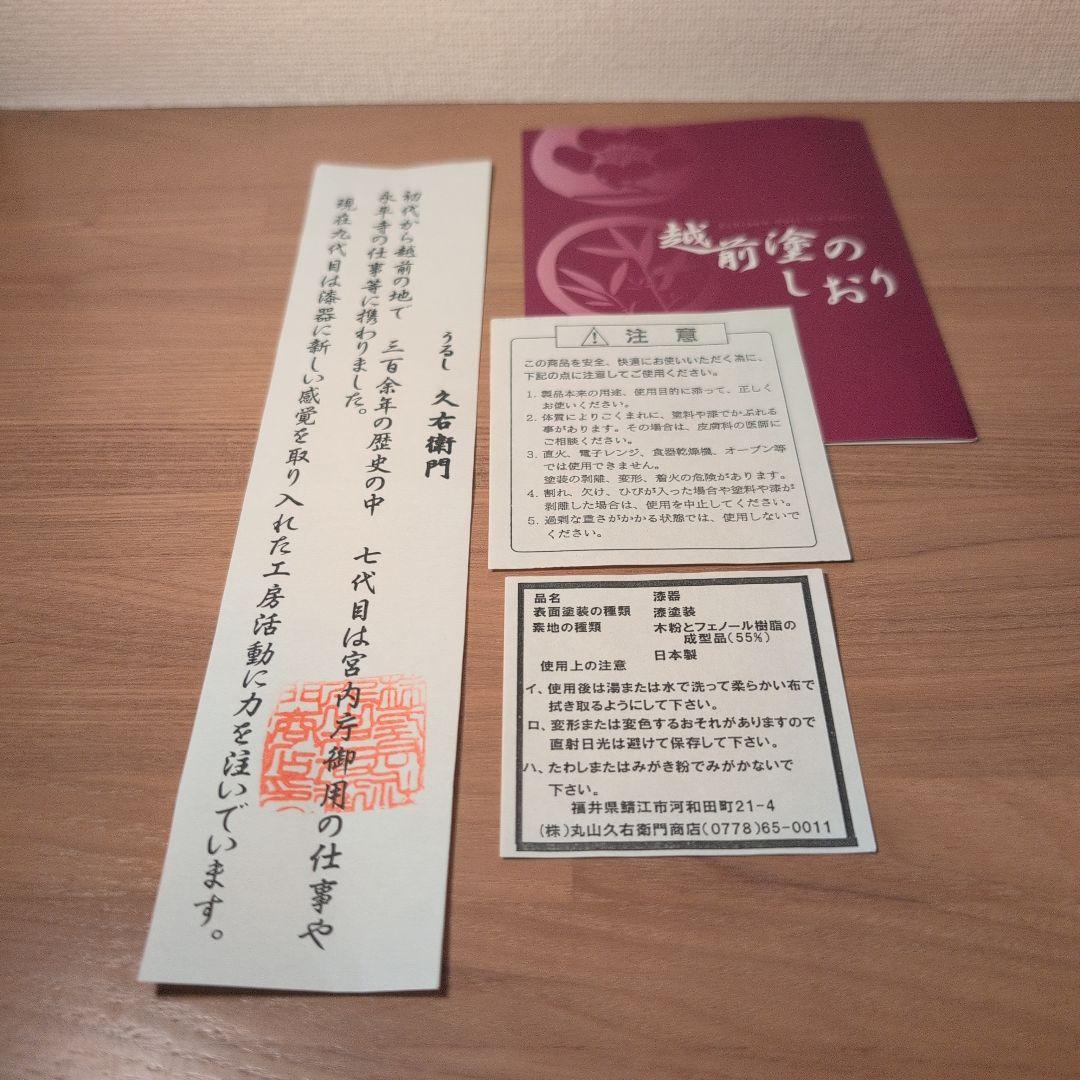 うるし 久右衛門
初代から越前の地で 三百余年の歴史の中 七代目は宮内庁御用の仕事や
永平寺の仕事等に携わりました。
現在九代目は漆器に新しい感覚を取り入れた工房活動に力を注いでいます。
越前塗の
しおり
注意
この商品を安全、快適にお使いいただく為に、
下記の点に注意してご使用ください。
1. 製品本来の用途、使用目的に添って、正しく
お使いください。
2. 体質によりごくまれに、塗料や漆でかぶれる
事があります。その場合は、皮膚科の医師に
ご相談ください。
3. 直火、電子レンジ、食器乾燥機、オーブン等
では使用できません。
塗装の剥離、変形、着火の危険があります。
4. 割れ、欠け、ひびが入った場合や塗料や漆が
剥離した場合は、使用を中止してください。
5. 過剰な重さがかかる状態では、使用しないで
ください。
品名 漆器
表面塗装の種類 漆塗装
素地の種類 木粉とフェノール樹脂の
成型品(55%)
日本製
使用上の注意
イ、使用後は湯または水で洗って柔らかい布で
拭き取るようにして下さい。
ロ、変形または変色するおそれがありますので
直射日光は避けて保存して下さい。
ハ、たわしまたはみがき粉でみがかないで
下さい。
福井県鯖江市河和田町21-4
(株)丸山久右衛門商店(0778)65-0011